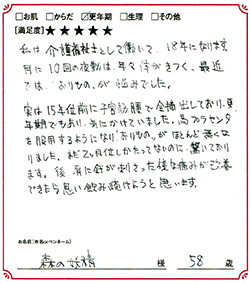 □お肌 □からだ ☑更年期 □生理 □その他
[満足度]★★★★★
私は介護福祉士として働いて、18年になります
月に10回の夜勤は、年々体がきつく、最近
では、おりものが悩みでした。
実は15年位前に子宮筋腫で全摘出しており、更
年期でもあり、気にかけていました。馬プラセンタ
を服用するようになりおりものが、ほとんど無くな
りました。まだ2ヶ月位しかたってないのに、驚いており
ます。後、肩に針が刺さった様な痛みが改善
できたらと思い飲み続けようと思います。
お名前(本名orペンネーム)
森の妖精 様 58 歳